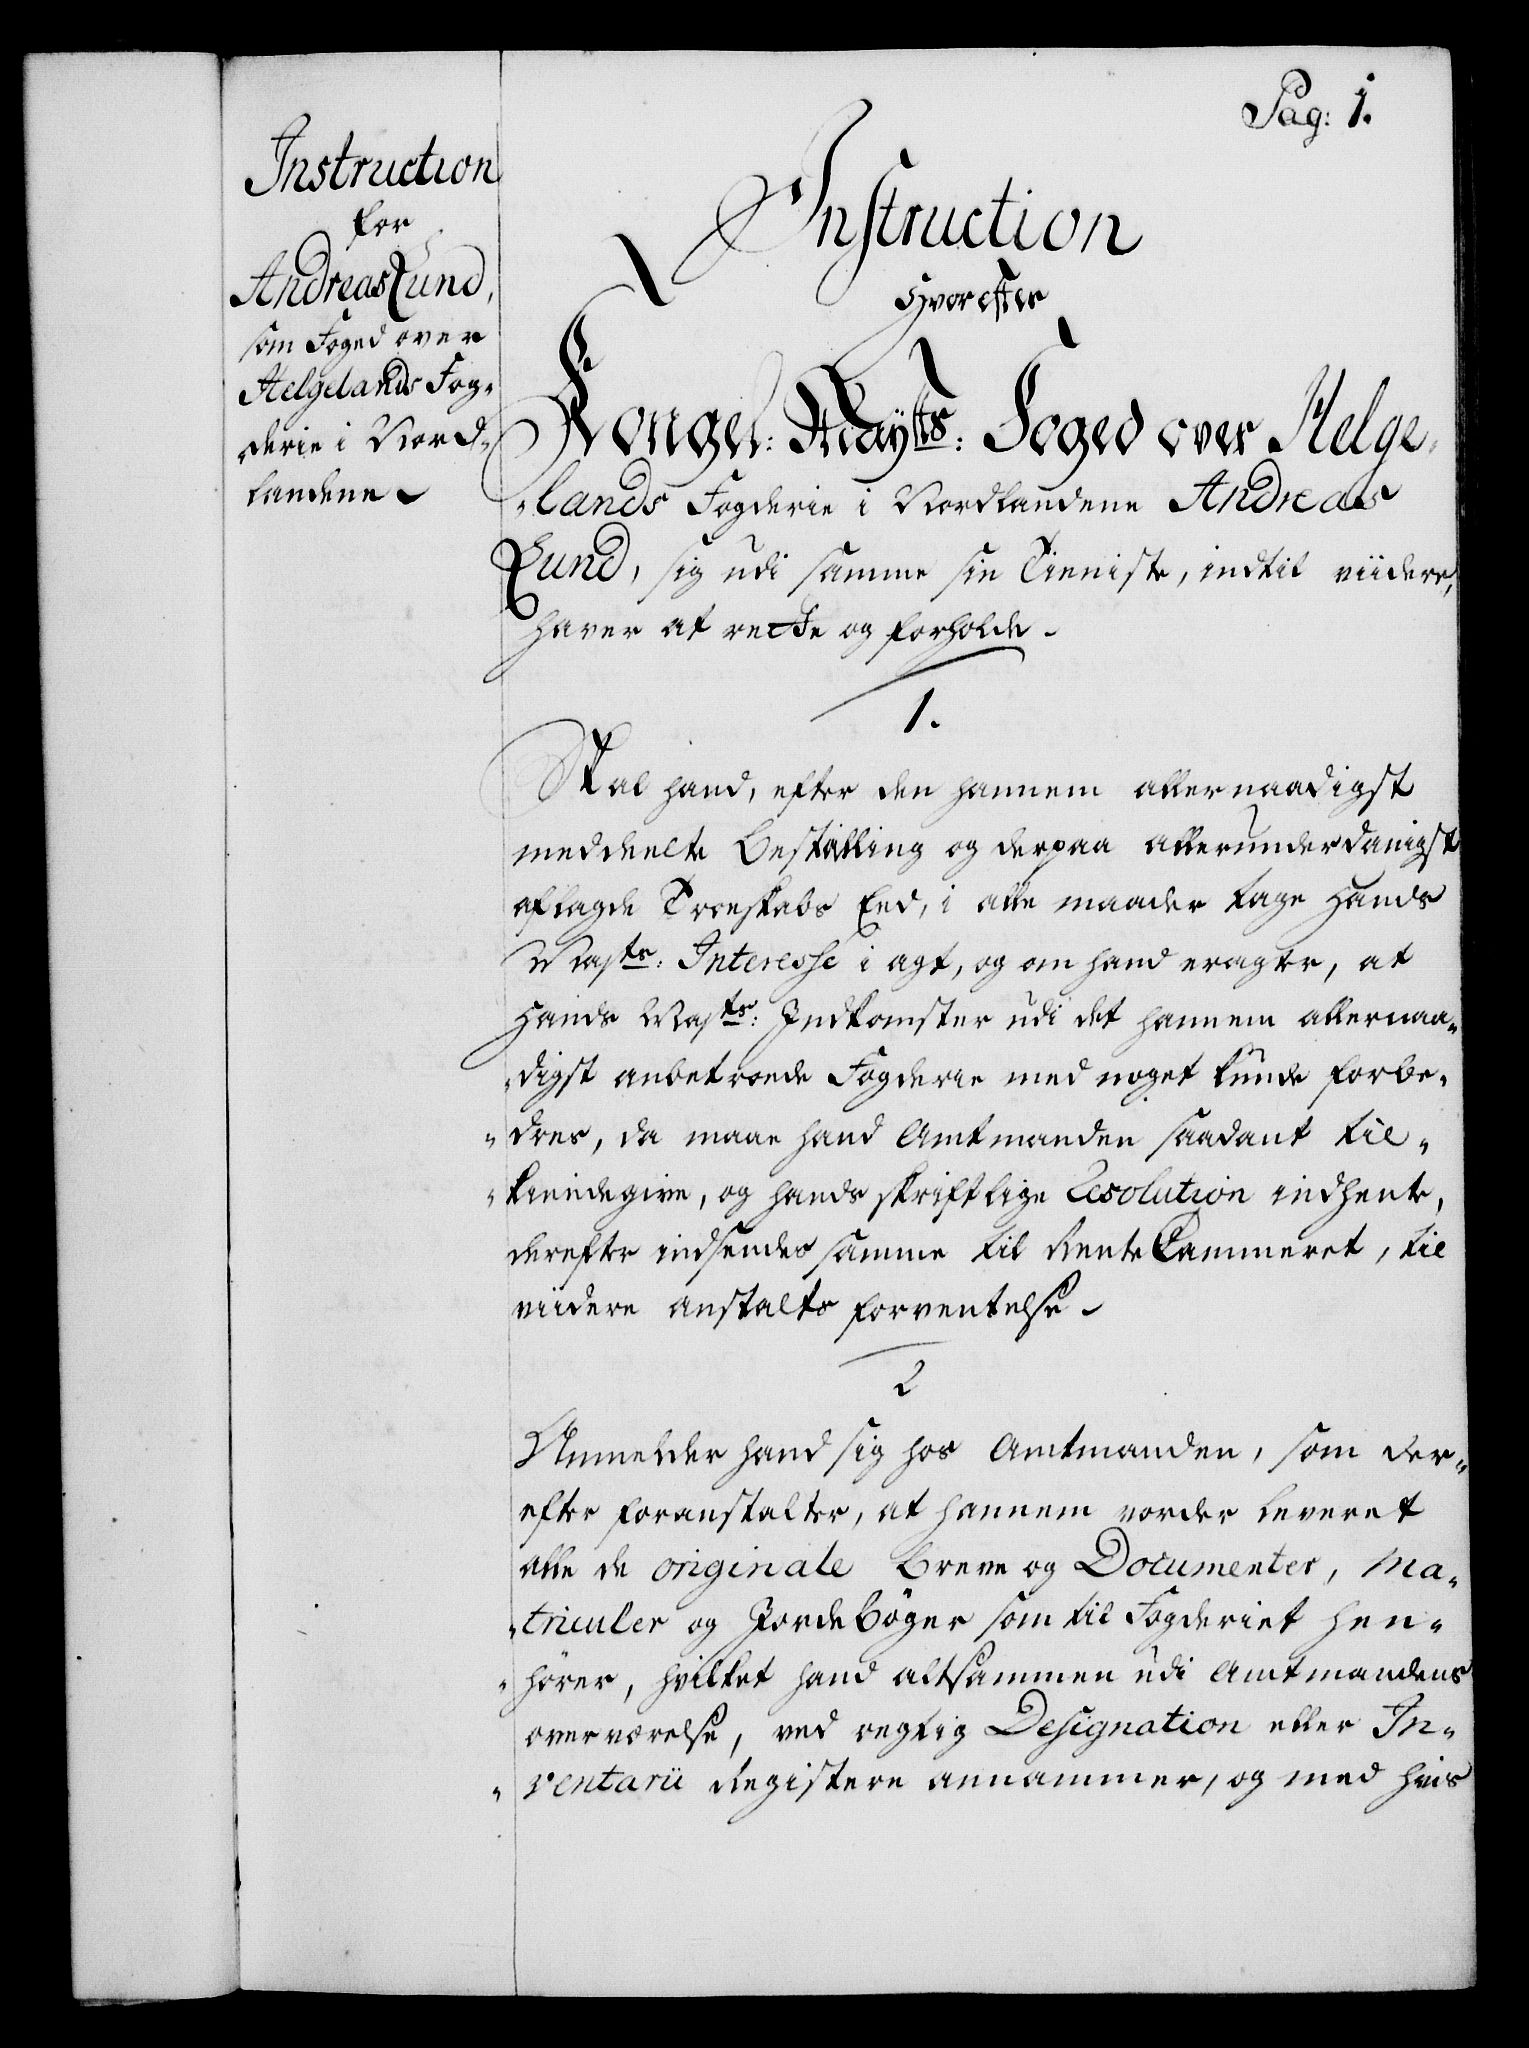 Pag: 1.
Instruction
for
Andreas Lund,
som Foged over
Helgelands Fog-
derie i Nord-
landene
Instruction
Hvorefter
Kongel: Mayts: Foged over Helge-
-lands Fogderie i Nordlandene Andreas
Lund, sig udi samme sin Tieniste, indtil viidere,
haver at rette og forholde.
1.
Skal hand, efter den hannem allernaadigst
meddeelte Bestalling og derpaa allerunderdanigst
aflagde Troeskabs Eed, i alle maader tage Hands
Mayts: Interesse i agt, og om hand eragter, at
Hands Mayts: Indkomster udi det hannem allernaa-
-digst anbetroede Fogderie med noget kunde forbe-
-dres, da maae hand Amtmanden saadant til-
-kiendegive, og hands skriftlige Resolution indhente,
derefter indsendes samme til RenteCammeret, til
viidere anstalts forventelse.
2
Anmelder hand sig hos Amtmanden, som der-
efter foranstalter, at hannem vorder leveret
alle de originale breve og Documenter, Ma-
-triculer og Jordebøger som til Fogderiet hen-
-hører, hvilket hand altsammen udi Amtmandens
overværelse, ved rigtig Designation eller In-
-ventarii Registere annammer, og med hvis